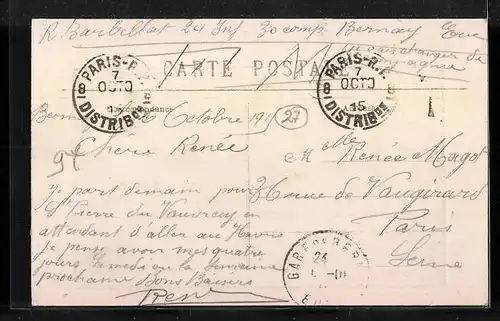 R. Barbillat 24 Inf 30 comp. Bernay Eure
je vais changer de
compagnie
CARTE POSTALE
PARIS-R.P.
8 7
OCTO
15
DISTRIB
PARIS-R.P.
8 7
OCTO
15
DISTRIB
Correspondance
6 Octobre 191
27
Chere Renée
Je part demain pour
St Pierre du Vauvray en
attendant d'aller au Havre
je pense avoir mes quatre
jours la semaine
prochaine Bons Baisers
René
Mlle Renée Magot
rue de Vaugirard
Paris
Seine
GARE DE BERNAY
24